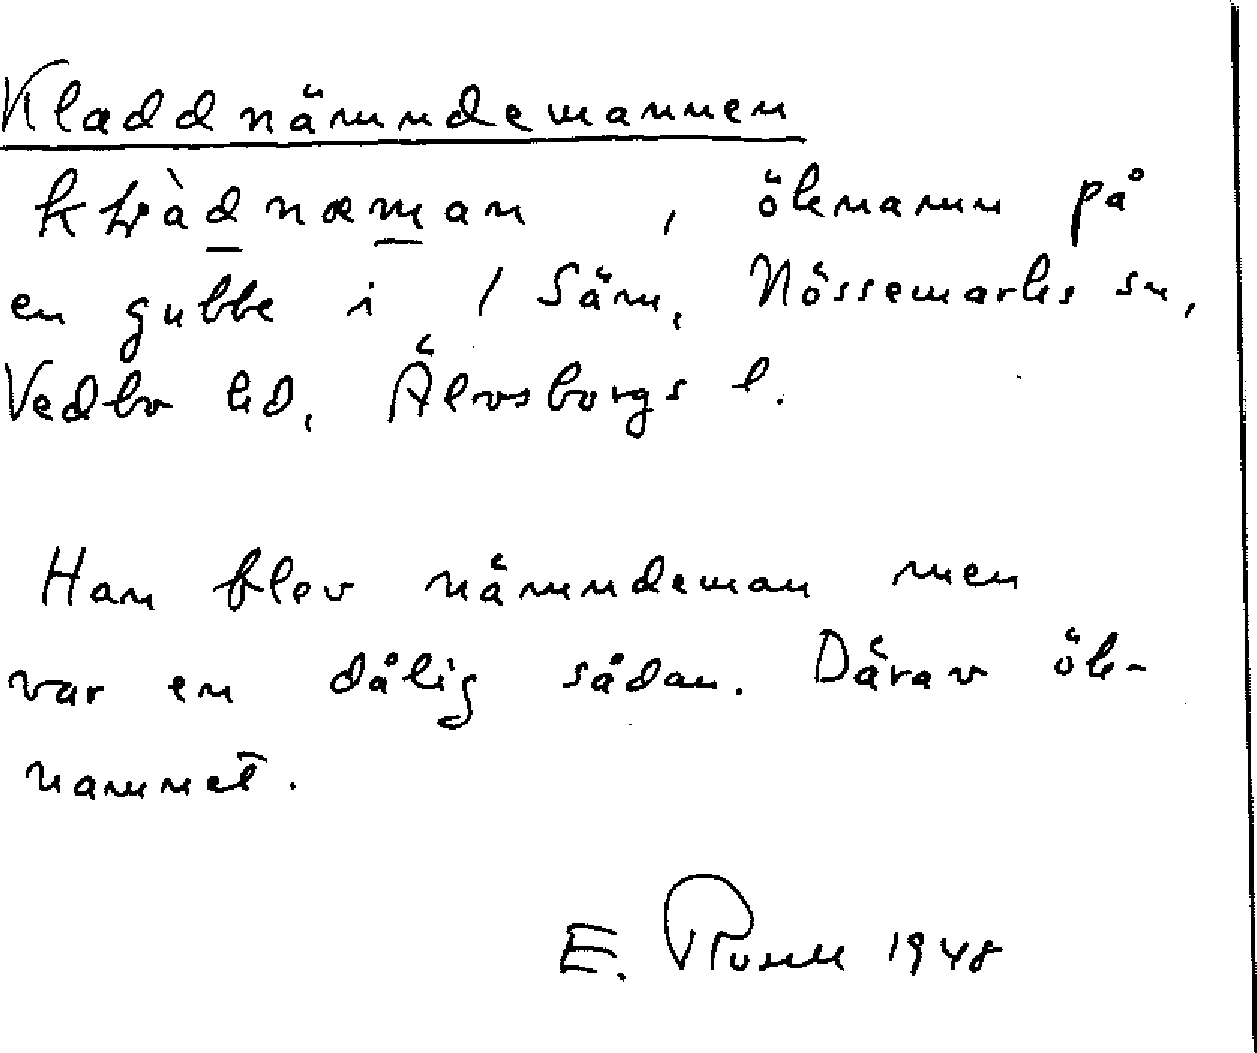 Kladdnämndemannen
kłàdnæman , öknamn på
en gubbe i / Säm, Nössemarks sn,
Vedbo hd, Älvsborgs l.
Han blev nämndeman men
var en dålig sådan. Därav ök-
namnet.
E. 1948